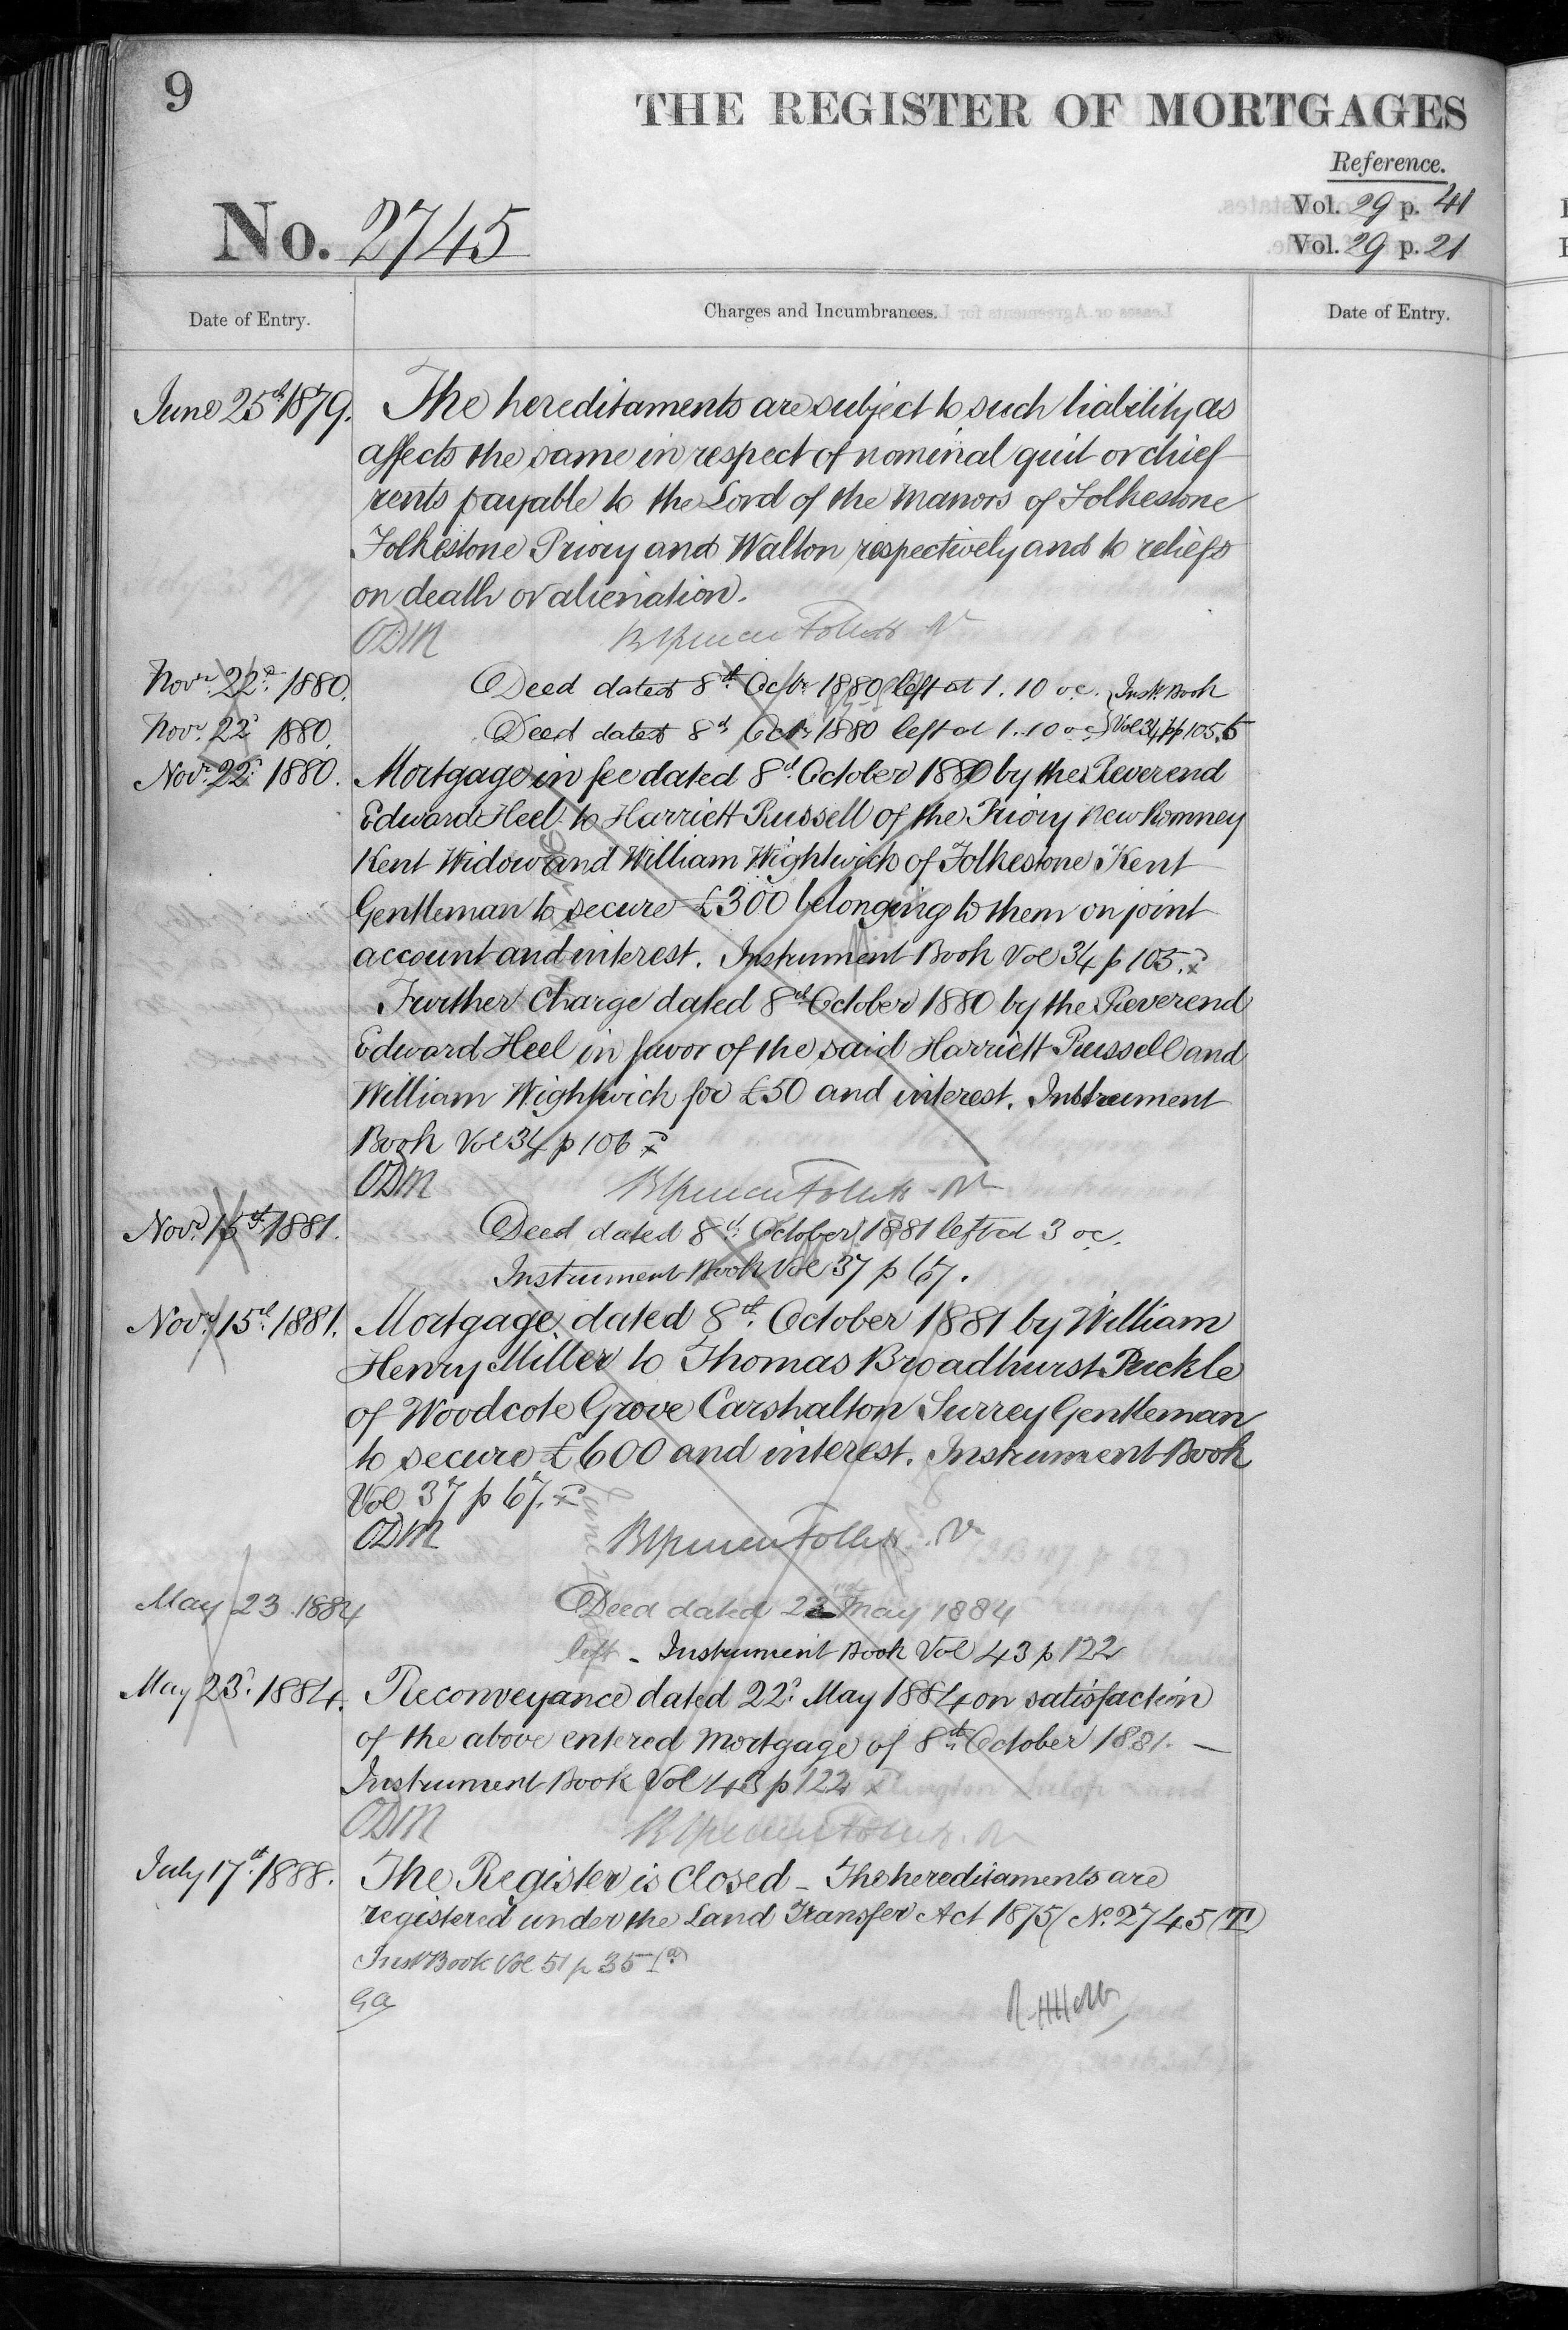 9
THE REGISTER OF MORTGAGES
Reference.
Vol. 29 p. 41
No. 2745
Vol. 29 p. 21
Date of Entry.
Charges and Incumbrances.
Date of Entry.
June 25th 1879. The hereditaments are subject to such liability as
affects the same in respect of nominal quit or chief
rents payable to the Lord of the Manors of Folkestone
Folkestone Priory and Walton respectively and to reliefs
on death or alienation.
ODM
Novr. 22d. 1880. Deed dated 8th Octr. 1880 left at 1.10 oc. Inst. Book
Novr. 22d. 1880. Deed dated 8th Octr. 1880 left at 1.10 oc. Vol 34 pp 105.6
Novr. 22d. 1880. Mortgage in fee dated 8th October 1880 by the Reverend
Edward Heel to Harriett Russell of the Priory New Romney
Kent Widow and William Wightwick of Folkestone Kent
Gentleman to secure £300 belonging to them on joint
account and interest. Instrument Book Vol 34 p 105.
Further Charge dated 8th October 1880 by the Reverend
Edward Heel in favor of the said Harriett Russell and
William Wightwick for £50 and interest. Instrument
Book Vol 34 p 106
ODM
Novr. 15th 1881. Deed dated 8th October 1881 left at 3 oc.
Instrument Book Vol 37 p 67.
Novr. 15th 1881. Mortgage dated 8th October 1881 by William
Henry Miller to Thomas Broadhurst Puckle
of Woodcote Grove Carshalton Surrey Gentleman
to secure £600 and interest. Instrument Book
Vol 37 p 67.
ODM
May 23 1884 Deed dated 22nd May 1884
left - Instrument Book Vol 43 p 122
May 23d. 1884. Reconveyance dated 22d. May 1884 on satisfaction
of the above entered mortgage of 8th October 1881. —
Instrument Book Vol 43 p 122
ODM
July 17th 1888. The Register is Closed - The hereditaments are
registered under the Land Transfer Act 1875 (No. 2745 (T)
Inst Book Vol 51 p 35